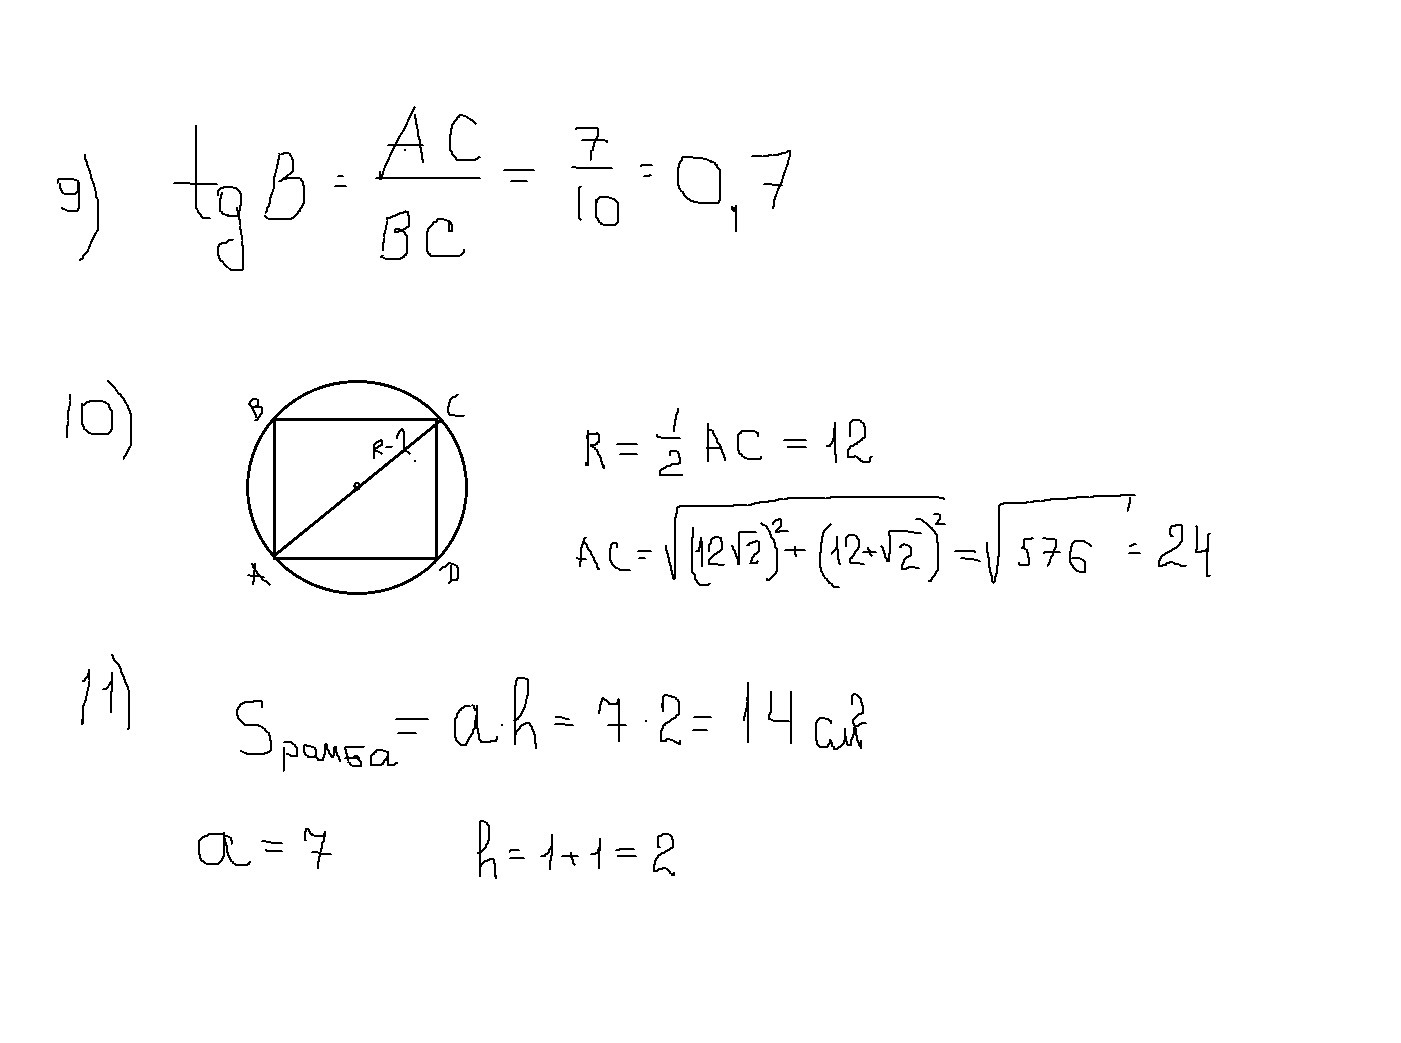 9) tg B = AC/BC = 7/10 = 0,7
10)
B C
R-?
A D
R = 1/2 AC = 12
AC = √((12√2)² + (12+√2)²) = √576 = 24
11) Sромба = a·h = 7·2 = 14 см²
a = 7 h = 1+1 = 2